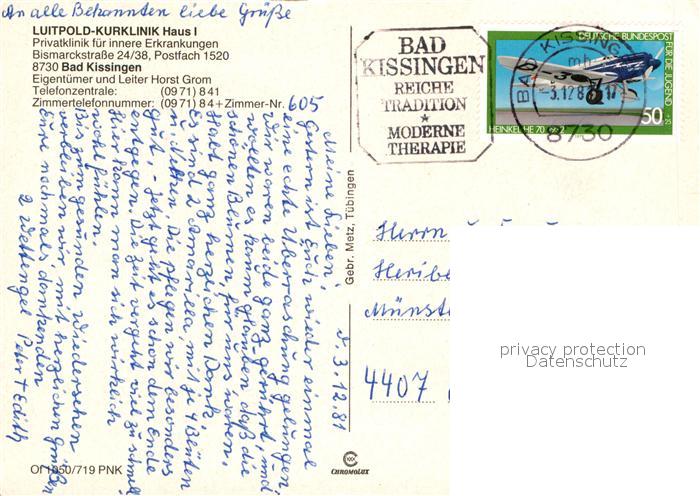 An alle Bekannten liebe Grüße
LUITPOLD-KURKLINIK Haus I
Privatklinik für innere Erkrankungen
Bismarckstraße 24/38, Postfach 1520
8730 Bad Kissingen
Eigentümer und Leiter Horst Grom
Telefonzentrale: (09 71) 841
Zimmertelefonnummer: (09 71) 84+Zimmer-Nr. 605
d. 3.12.81
Meine Lieben!
Gestern ist Euch wieder einmal
eine echte Überraschung gelungen,
wir waren beide ganz gerührt, und
wollten es kaum glauben, daß die
schönen Blumen, für uns waren.
Habt ganz herzlichen Dank,
Es sind 2 Amarillis mit je 4 Blüten
Die pflegen wir besonders
gut, - Jetzt geht es schon dem Ende
entgegen. Die Zeit vergeht viel zu schnell
Hier kann man sich wirklich
wohl fühlen.
Bis zum gesunden Wiedersehen
verbleiben wir mit herzlichen Grüßen
Eure nochmals dankenden
2 Wettengel Peter + Edith
Gebr. Metz, Tübingen
BAD
KISSINGEN
REICHE
TRADITION
★
MODERNE
THERAPIE
BAD KISSINGEN
3.12.81-17
8730
DEUTSCHE BUNDESPOST
FÜR DIE JUGEND
50
+25
HEINKEL HE 70 1932
Herrn
Heribe
Münst
4407
privacy protection
Datenschutz
Of 1050/719 PNK
CHROMOLUX